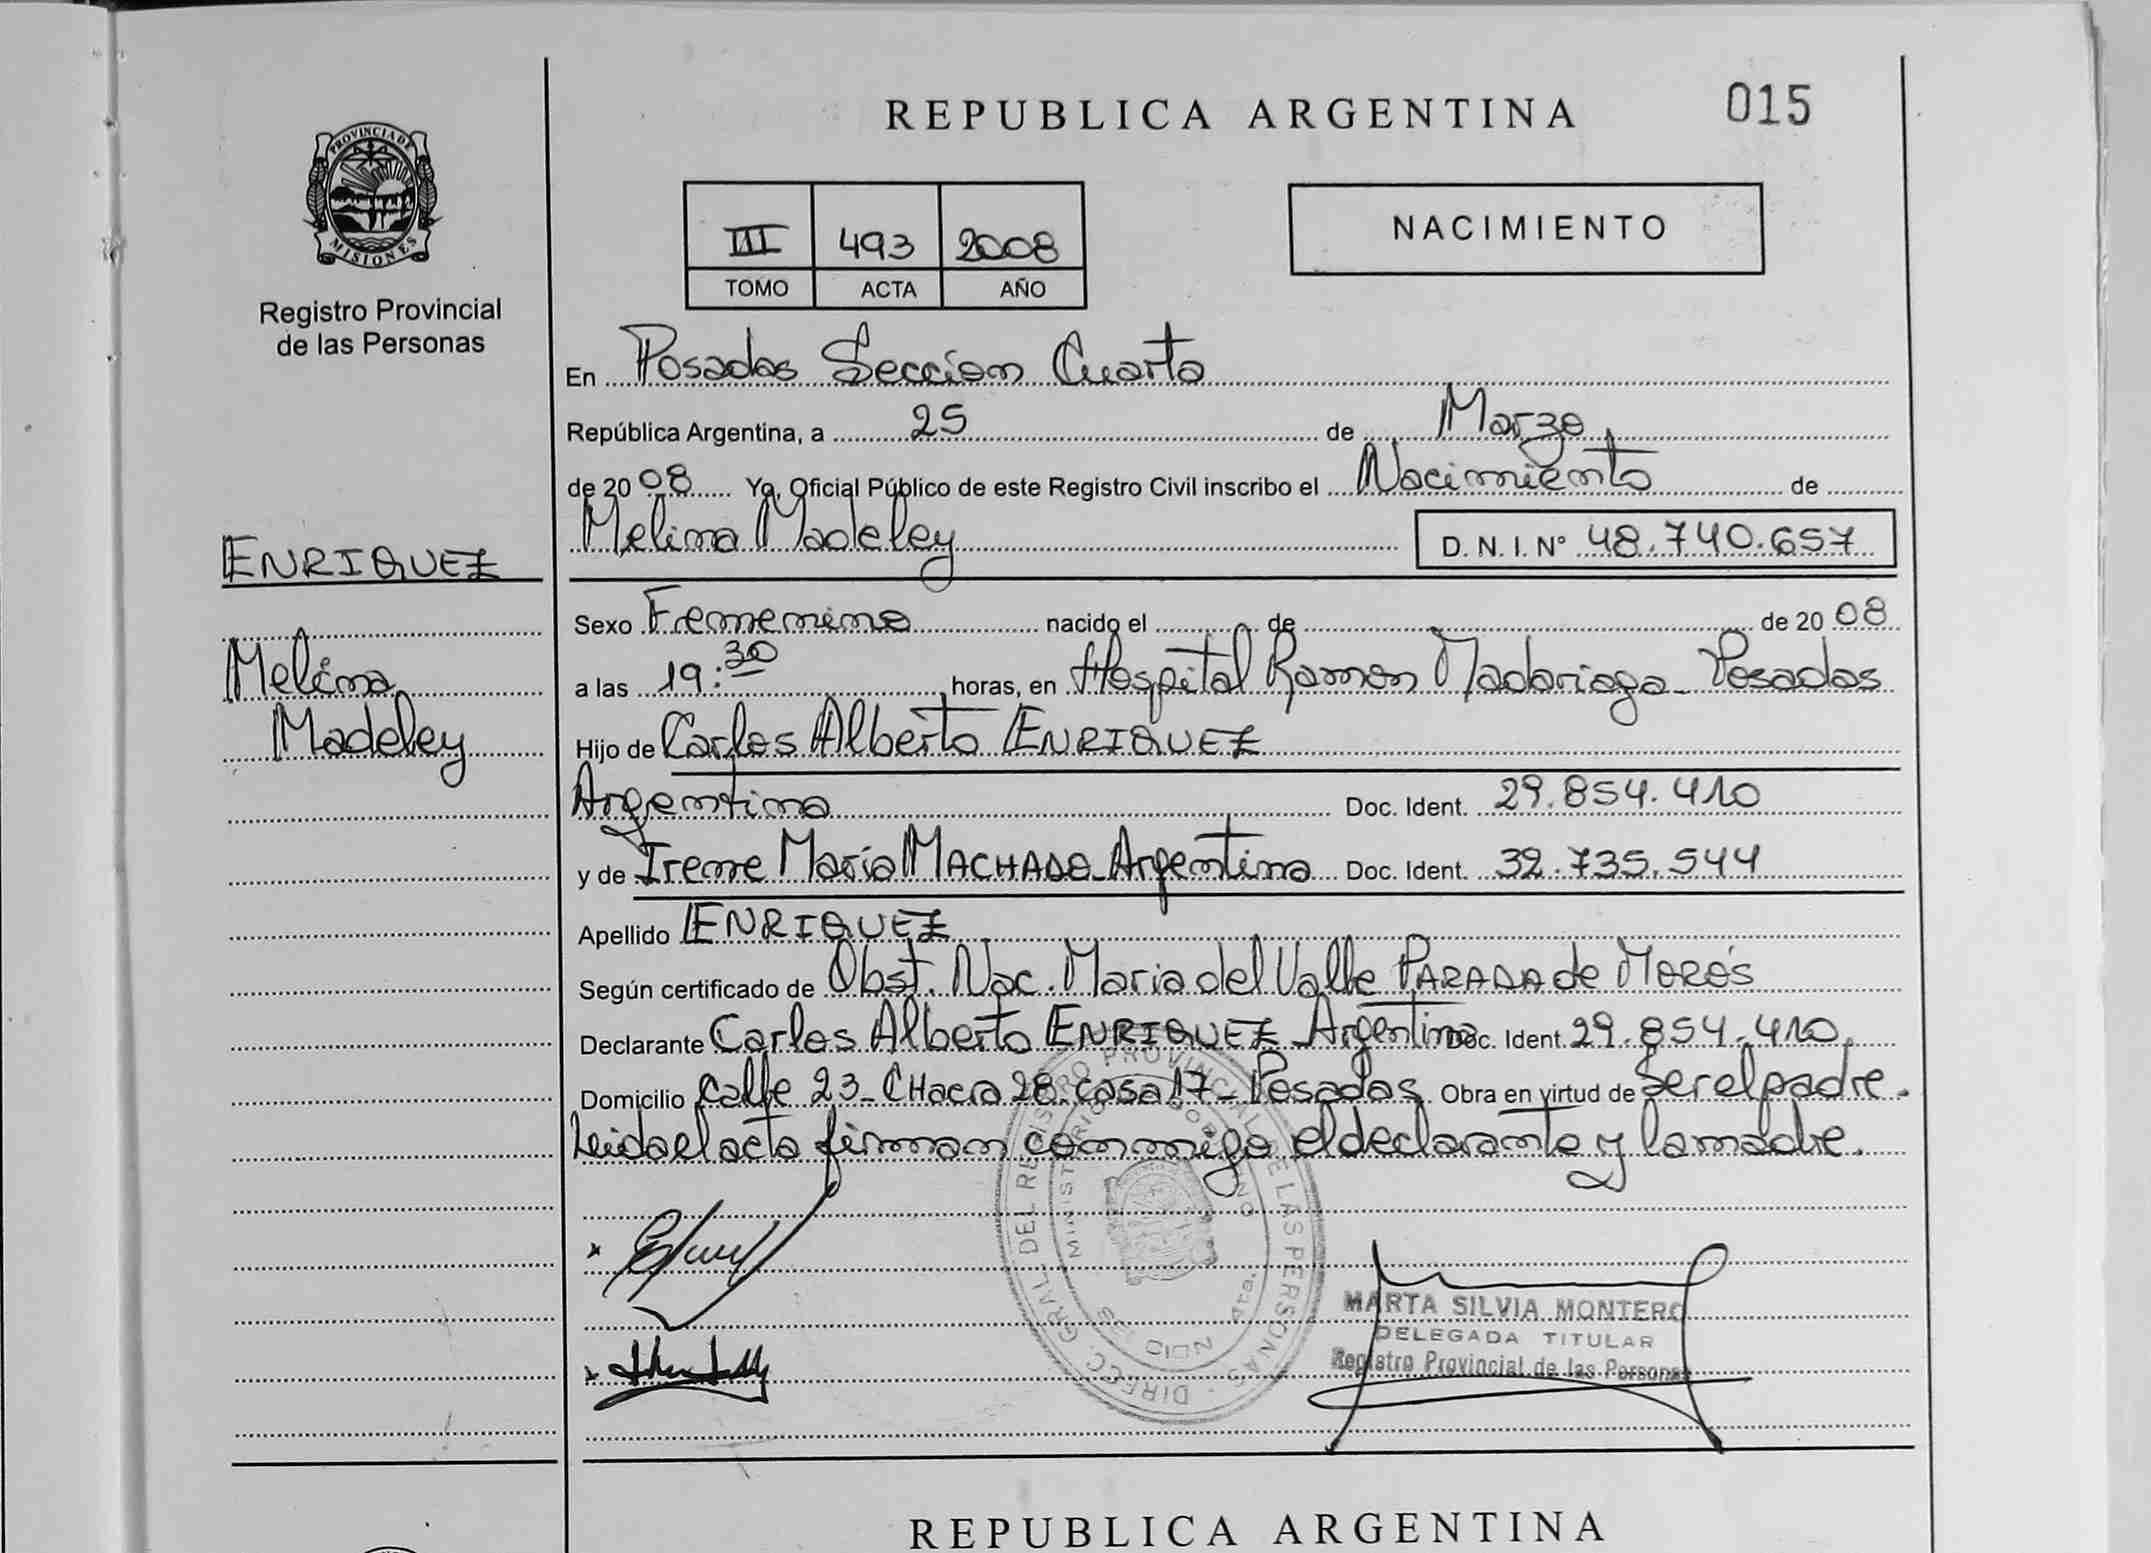 REPUBLICA ARGENTINA
015
PROVINCIA DE
MISIONES
Registro Provincial
de las Personas
III 493 2008
TOMO ACTA AÑO
NACIMIENTO
En Posadas Seccion Cuarta
República Argentina, a 25 de Marzo
de 20 08 Yo, Oficial Público de este Registro Civil inscribo el Nacimiento de
Melina Madeley D. N. I. N° 48.740.657
ENRIQUEZ
Melina
Madeley
Sexo Femenino nacido el de de 20 08
a las 19:30 horas, en Hospital Ramon Madariaga - Posadas
Hijo de Carlos Alberto ENRIQUEZ
Argentino Doc. Ident. 29.854.410
y de Irene María MACHADO - Argentina Doc. Ident. 32.735.544
Apellido ENRIQUEZ
Según certificado de Obst. Nac. Maria del Valle PARADA de MORÓS
Declarante Carlos Alberto ENRIQUEZ Argentino Doc. Ident. 29.854.410.
Domicilio Calle 23 - CHacra 28 casa 17 - Posadas. Obra en virtud de Ser el padre.
Leida el acta firman conmigo el declarante y la madre.
DIRECC. GRAL. DEL REGISTRO PROVINCIAL DE LAS PERSONAS
MARTA SILVIA MONTERO
DELEGADA TITULAR
Registro Provincial de las Personas
REPUBLICA ARGENTINA